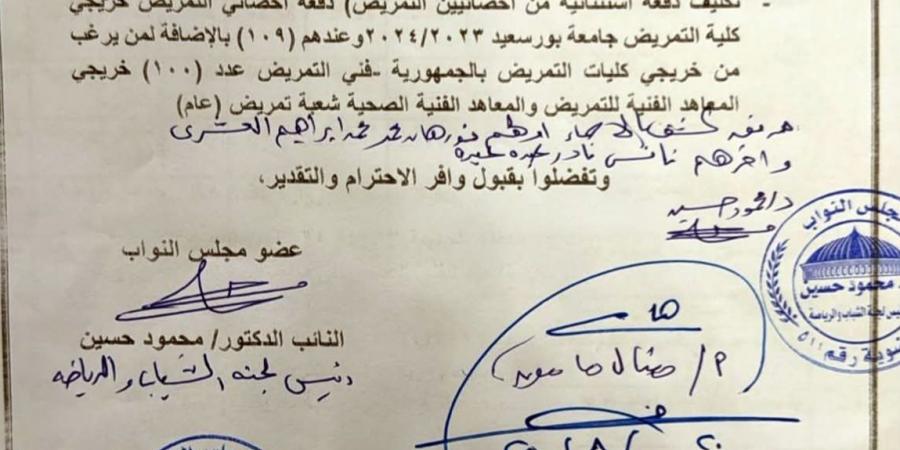 - تكليف دفعة استثنائية من أخصائيين التمريض) دفعة أخصائي التمريض خريجي
كلية التمريض جامعة بورسعيد ٢٠٢٤/٢٠٢٣ وعندهم (١٠٩) بالإضافة لمن يرغب
من خريجي كليات التمريض بالجمهورية -فني التمريض عدد (١٠٠) خريجي
المعاهد الفنية للتمريض والمعاهد الفنية الصحية شعبة تمريض (عام)
مرفق كشف بالأسماء أولهم نورهان محمد محمد ابراهيم العشرى
وآخرهم نادر عبده
وتفضلوا بقبول وافر الاحترام والتقدير،
د/ محمود حسين
عضو مجلس النواب
النائب الدكتور/ محمود حسين
رئيس لجنة الشباب والرياضه
مجلس النواب
محمود حسين
رئيس لجنة الشباب والرياضة
عضوية رقم ٥١١
م/